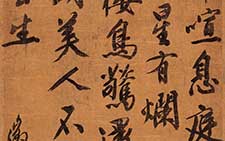 喧息庭
星有爛
棲鳥驚還
美人不
生